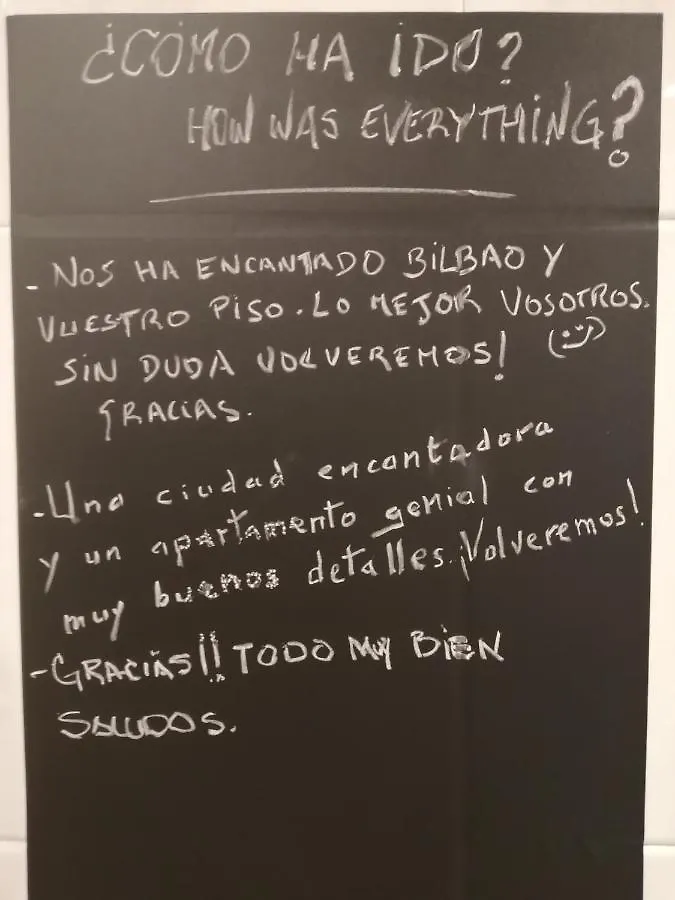 ¿CÓMO HA IDO?
HOW WAS EVERYTHING?
- NOS HA ENCANTADO BILBAO Y
VUESTRO PISO. LO MEJOR VOSOTROS.
SIN DUDA VOLVEREMOS! :)
GRACIAS.
- Una ciudad encantadora
y un apartamento genial con
muy buenos detalles. ¡Volveremos!
- GRACIAS!! TODO MUY BIEN
SALUDOS.